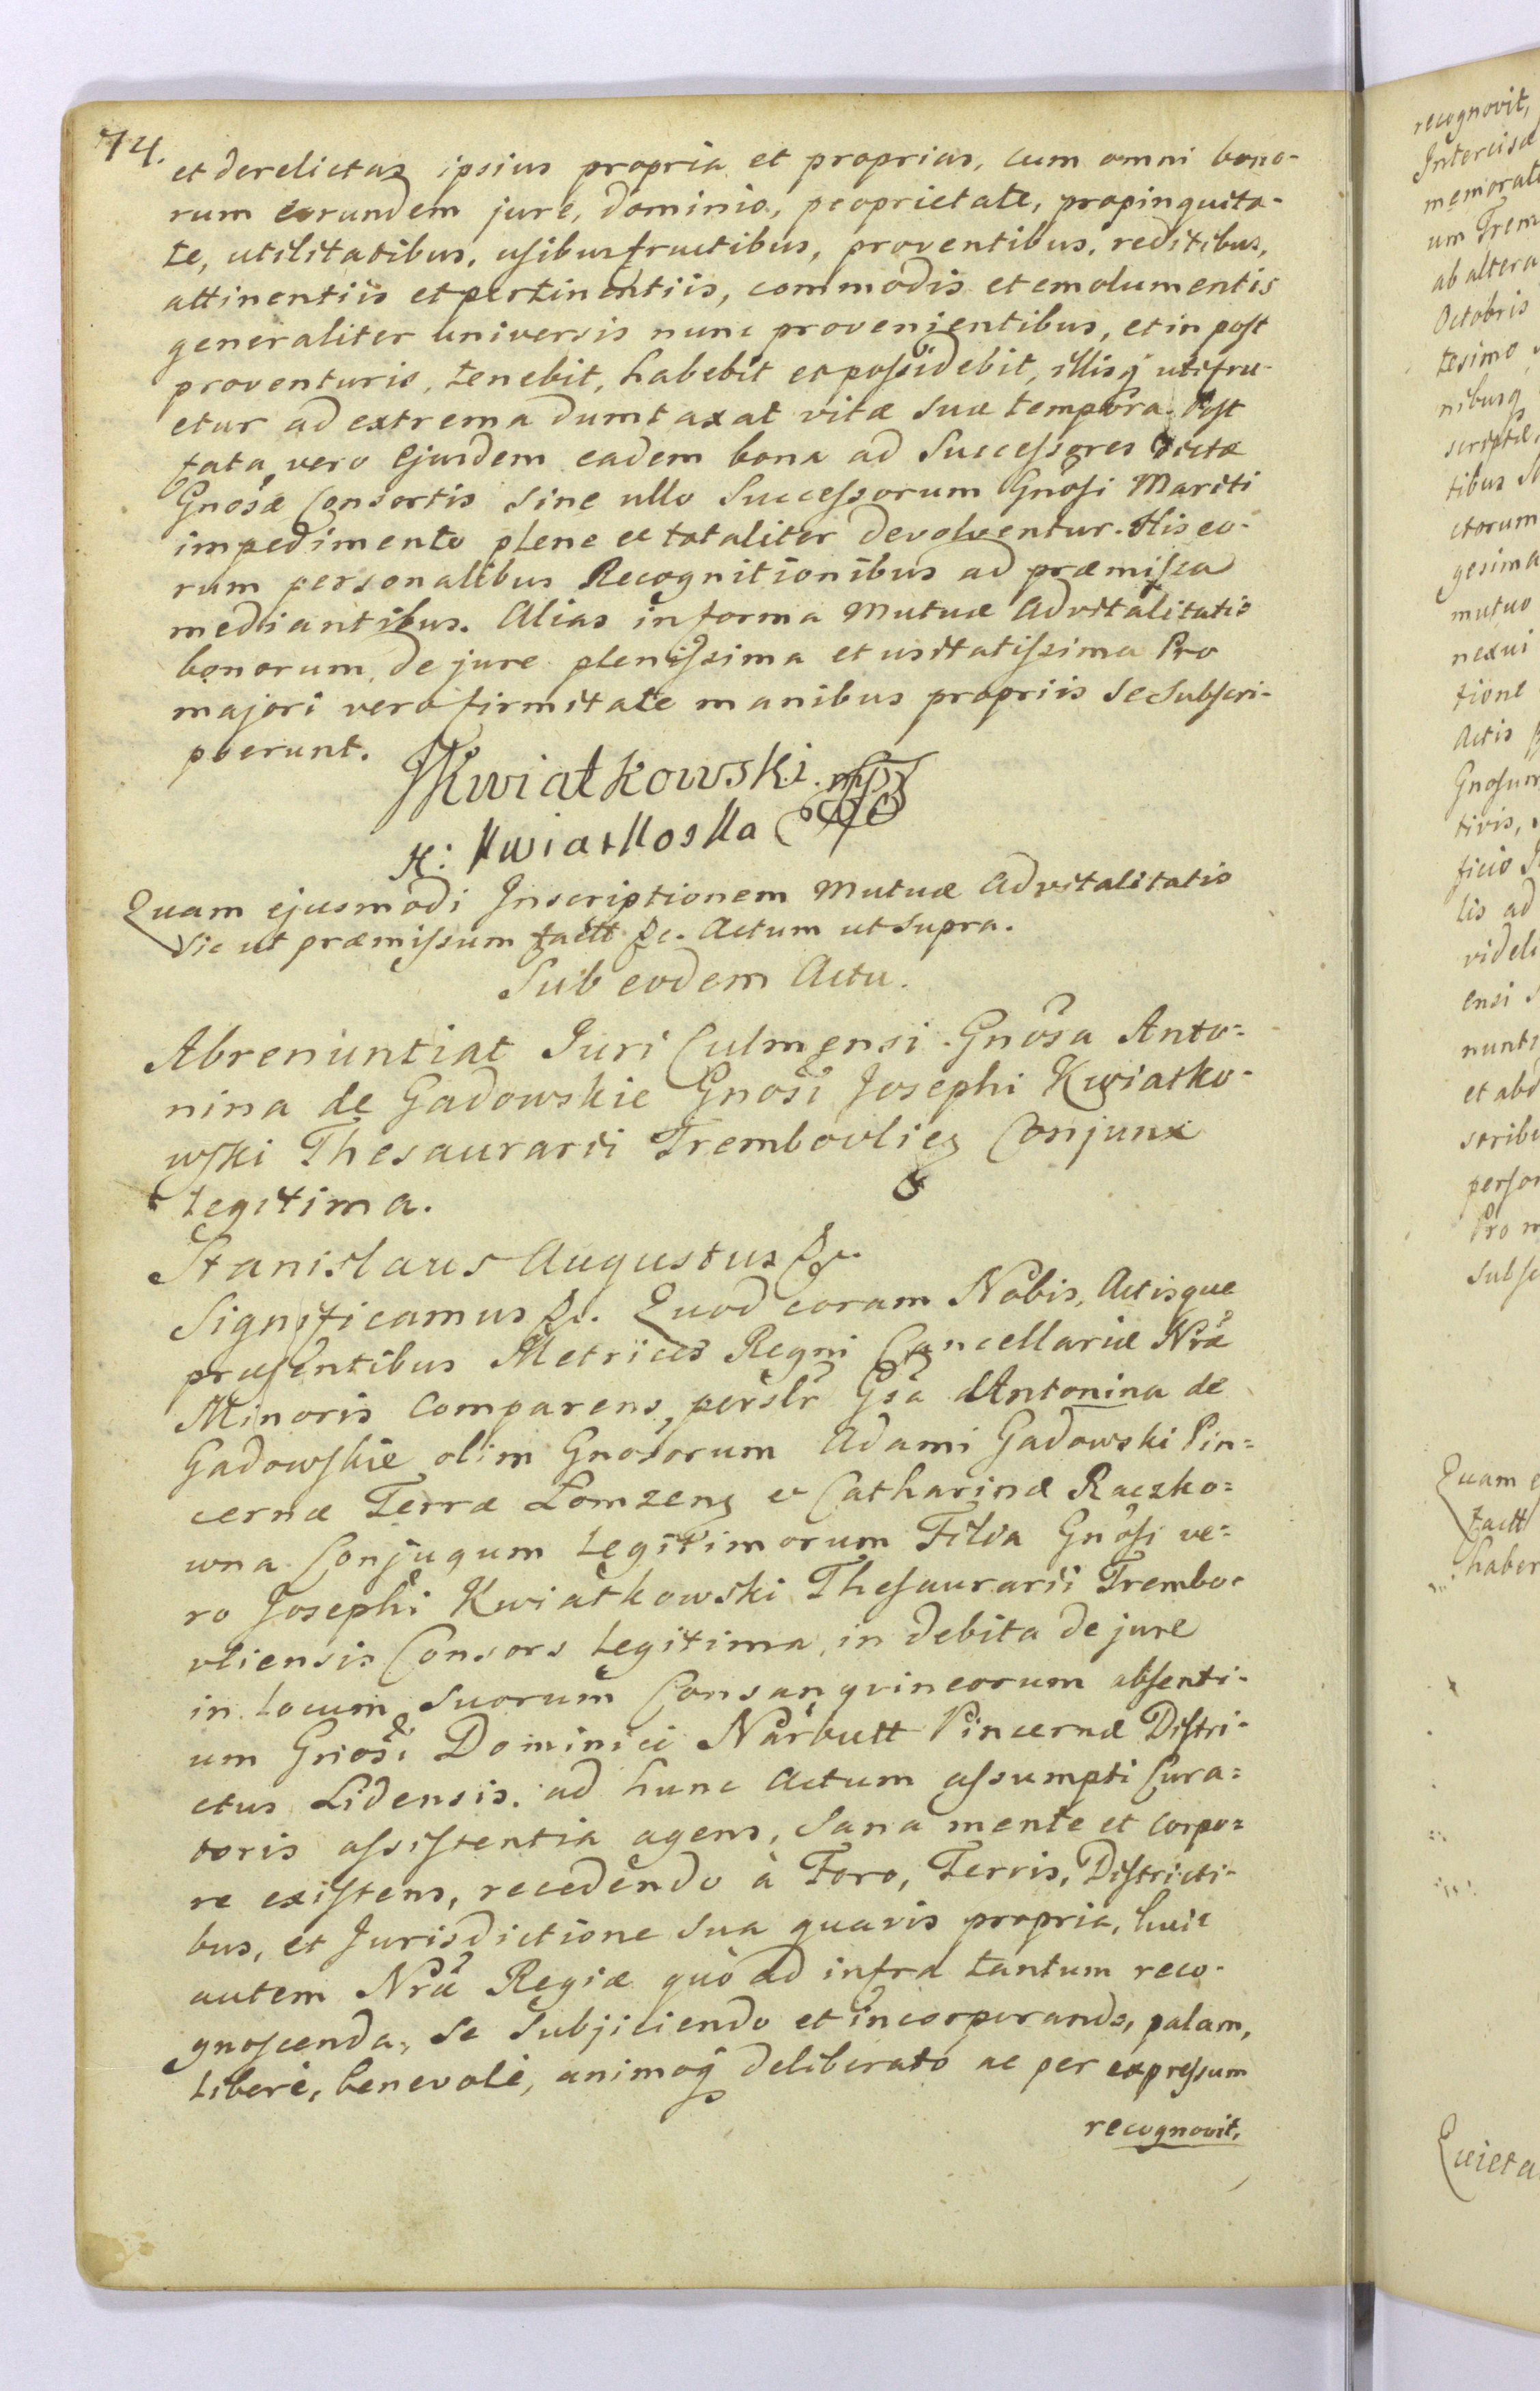 74.
et derelictas ipsius propria et proprias, cum omni bono-
rum eorundem jure, dominio, proprietate, propinquita-
te, utilitatibus, usibusfructibus, proventibus, reditibus,
attinentiis et pertinentiis, commodis et emolumentis
generaliter universis nunc provenientibus, et in post
proventuris, tenebit, habebit et possidebit, illisq utifru-
etur ad extrema dumtaxat vitæ suæ tempora. Post
fata vero Ejusdem eadem bona ad Successores dictæ
Gnosæ Consortis sine ullo Successorum Gnosi Mariti
impedimento plene et totaliter devolventur. His eo-
rum personalibus Recognitionibus ad præmissa
mediantibus. Alias in forma Mutuæ Advitalitatis
bonorum de jure plenissima et usitatissima Pro
majori vero firmitate manibus propriis se subscri-
pserunt.
JKwiatkowski mp
K: Kwiatkoska
Quam ejusmodi Inscriptionem Mutuæ Advitalitatis
sic ut præmissum factt &c. Actum ut supra.
Sub eodem Actu.
Abrenuntiat Juri Culmensi Gnosa Anto=
nina de Gadowskie Gnosi Josephi Kwiatko-
wski Thesaurarii Trembovlien Conjunx
Legitima.
Stanislaus Augustus &c.
Significamus &c. Quod coram Nobis, Actisque
præsentibus Metrices Regni Cancellariæ Nræ
Minoris Comparens, perslr Gsa Antonina de
Gadowskie olim Gnosorum Adami Gadowski Pin=
cernæ Terræ Lomzens et Catharinæ Raczko=
wna Conjugum Legitimorum Filia Gnosi ve=
ro Josephi Kwiatkowski Thesaurarii Trembo-
vliensis Consors Legitima, in debita de jure
in locum suorum Consangvineorum absenti-
um Gnosi Dominici Narbutt Pincernæ Distri-
ctus Lidensis, ad hunc Actum assumpti Cura=
toris assistentia agens, sana mente et corpo=
re existens, recedendo à Foro, Terris, Districti-
bus, et Jurisdictione sua quavis propria, huic
autem Nræ Regiæ quò ad infra tantum reco-
gnoscenda, se subjiciendo et incorporando, palam,
liberè, benevolè, animoq deliberato ac per expressum
recognovit,
recognovit,
Intercisæ
memorat
um Trem
ab altera
Octobris
tesimo
nibusq
scriptæ,
tibus
ctorum
gesima
mutuo
nexui
tione
Actis
Gnosum
tivis,
ficio
lis ad
videli
ensi
nunti
et abd
scribu
person
Pro m
subsc
Quam e
factt
haber
Quieta